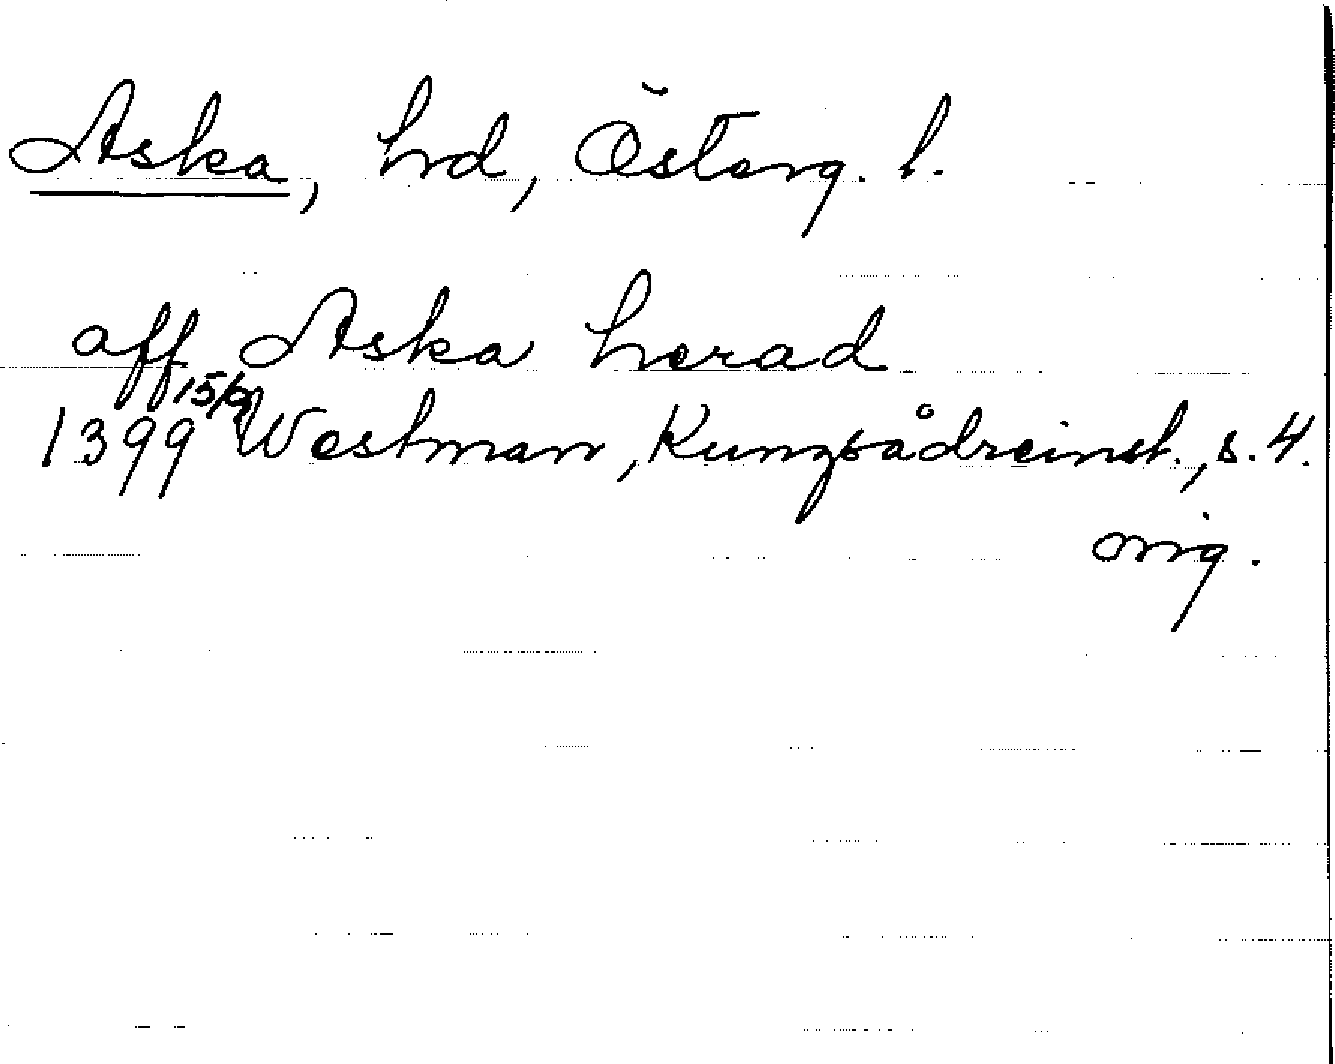 Aska, hrd, Österg. l.
aff Aska herad
1399 15/9 Westman, Kungsådreinst., s. 4.
orig.